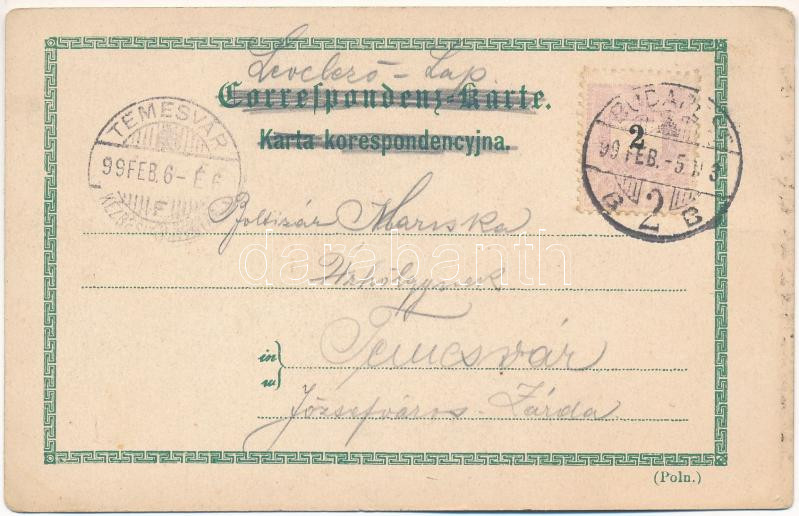 Levelező-Lap.
Correspondenz-Karte.
Karta korespondencyjna.
TEMESVÁR
99 FEB. 6 - É 6
F
BUDAPEST
99 FEB. -5
2
B 2 B
2
Mariska
Úrhölgynek
darabanth
in
w
Temesvár
Józsefváros - Zárda
(Poln.)